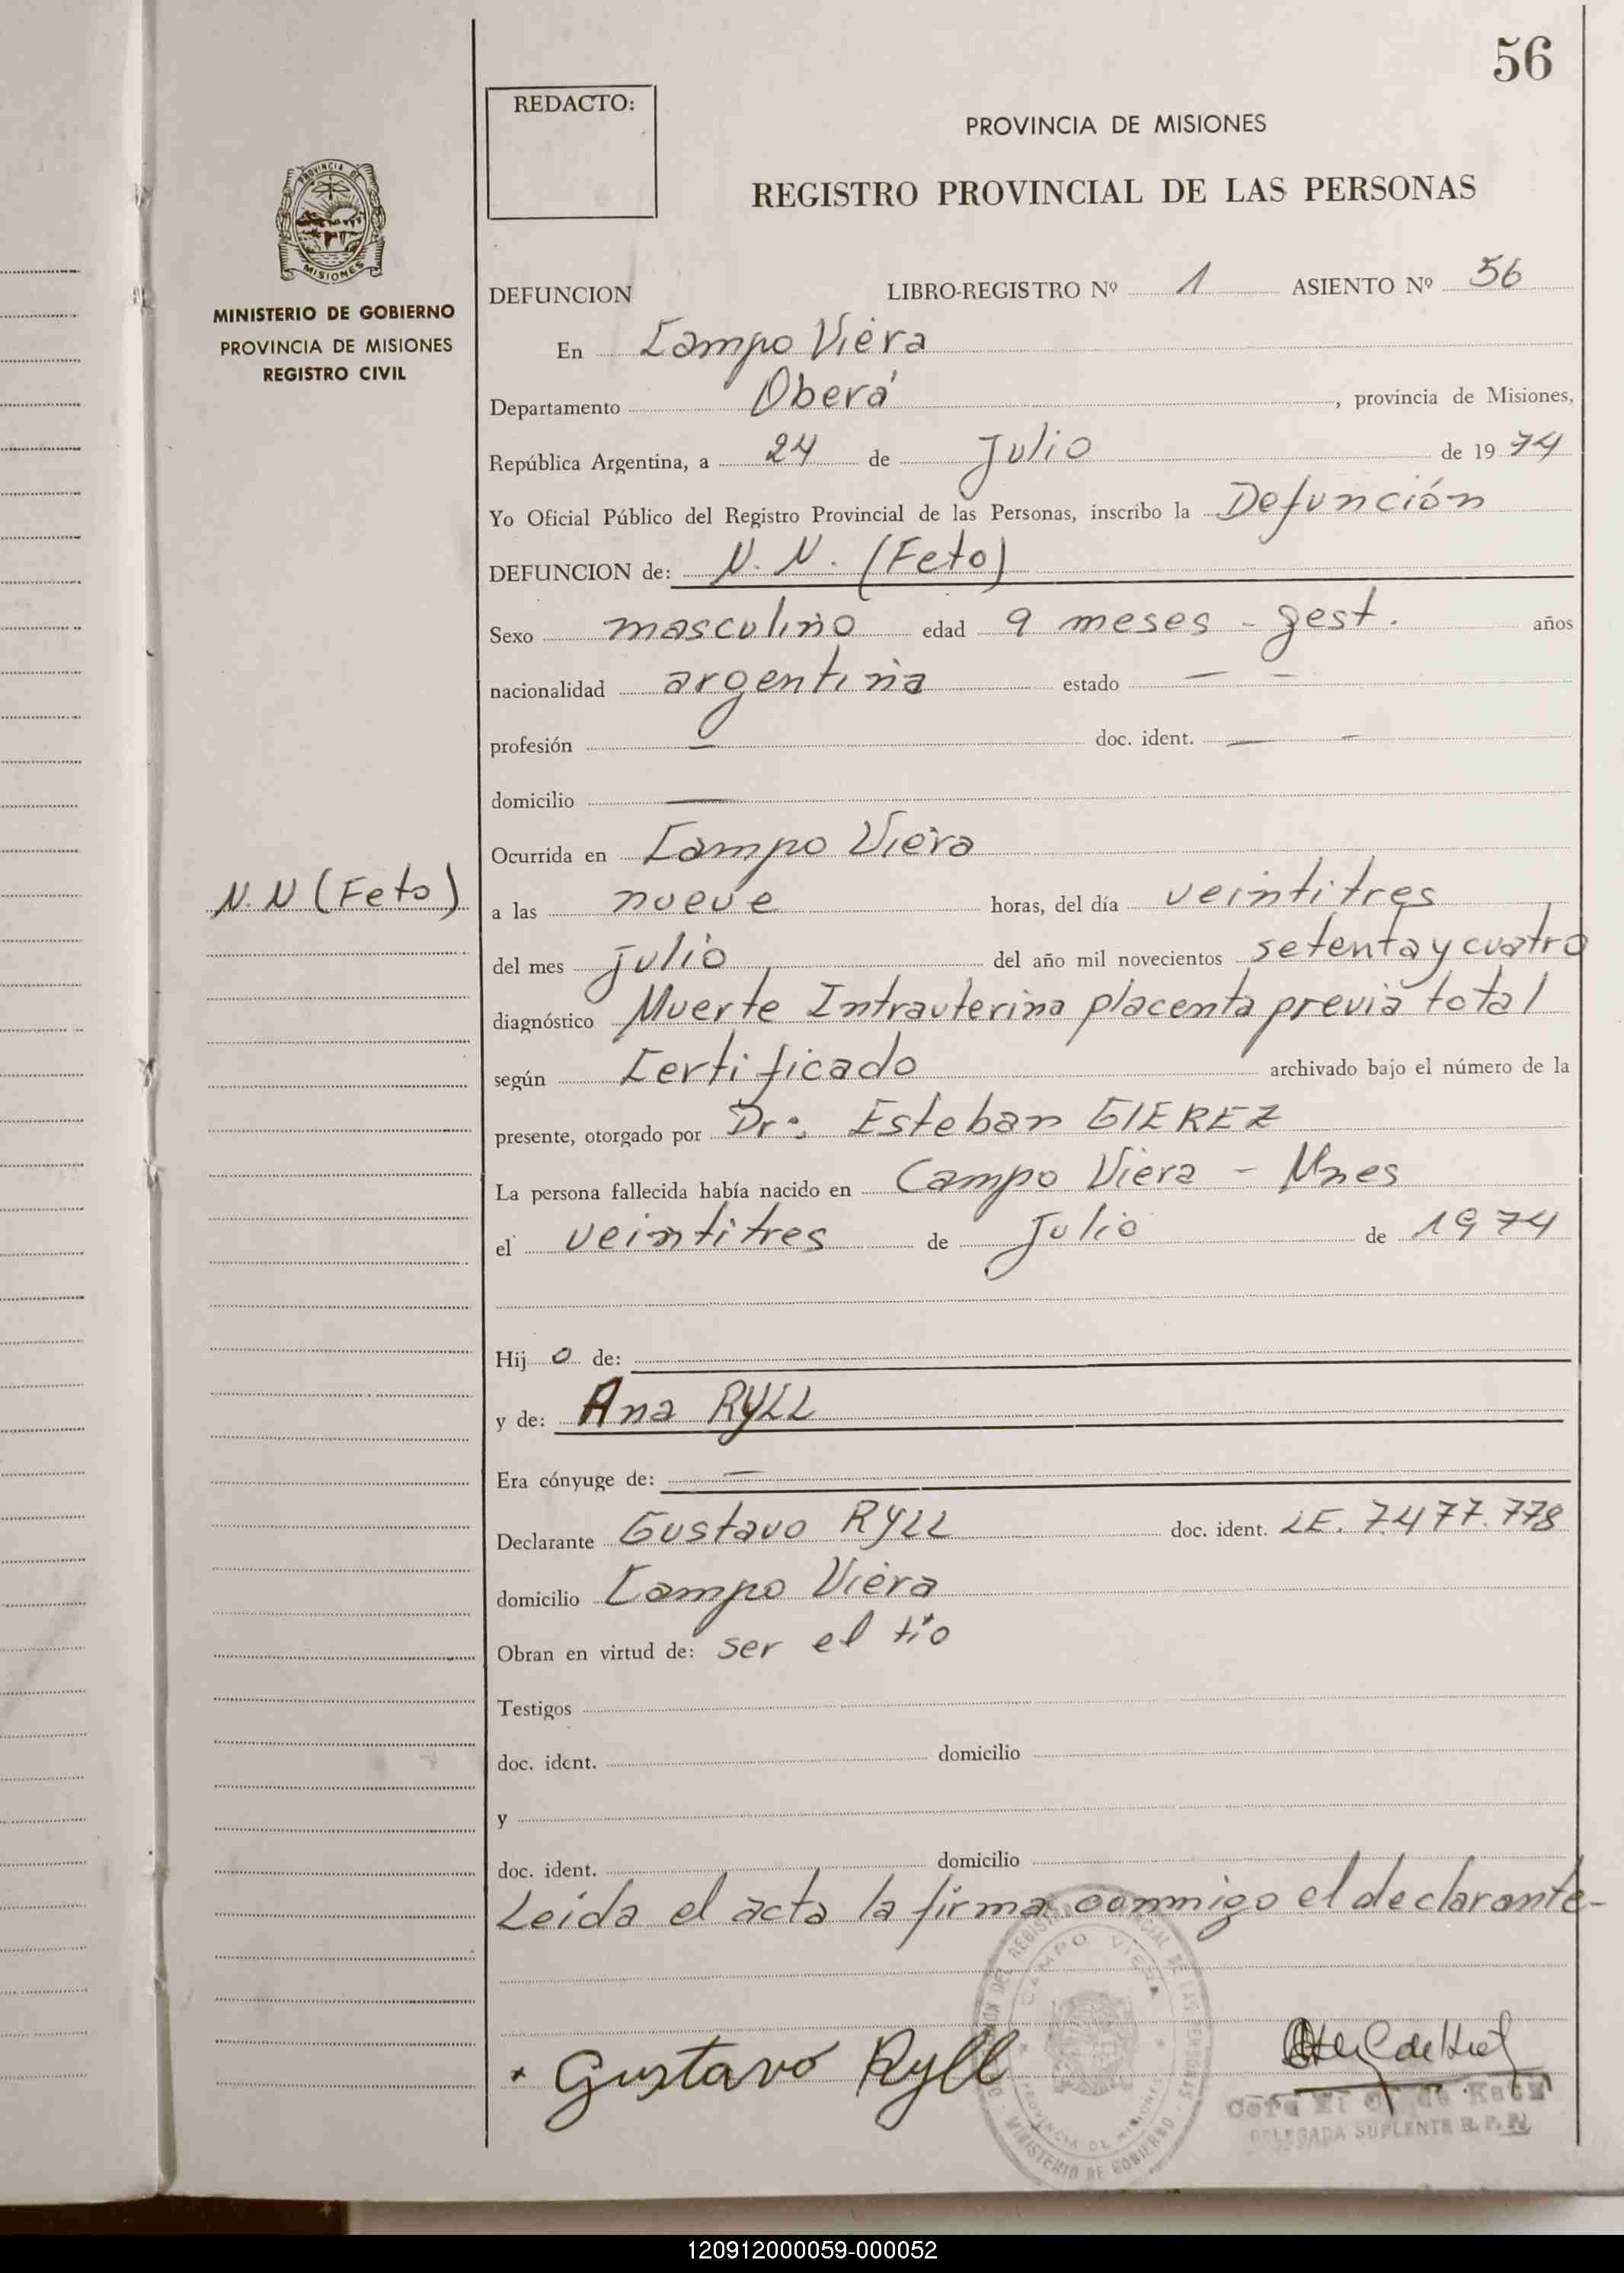 56
REDACTO:
PROVINCIA DE MISIONES
REGISTRO PROVINCIAL DE LAS PERSONAS
PROVINCIA DE
MISIONES
MINISTERIO DE GOBIERNO
PROVINCIA DE MISIONES
REGISTRO CIVIL
DEFUNCION LIBRO-REGISTRO Nº 1 ASIENTO Nº 56
En Campo Viera
Departamento Oberá, provincia de Misiones,
República Argentina, a 24 de Julio de 1974
Yo Oficial Público del Registro Provincial de las Personas, inscribo la Defunción
DEFUNCION de: N. N. (Feto)
Sexo masculino edad 9 meses - gest. años
nacionalidad argentina estado — —
profesión — doc. ident. — —
domicilio —
Ocurrida en Campo Viera
N. N (Feto)
a las nueve horas, del día veintitres
del mes julio del año mil novecientos setenta y cuatro
diagnóstico Muerte Intrauterina placenta previa total
según Certificado archivado bajo el número de la
presente, otorgado por Dr: Esteban GIEREZ
La persona fallecida había nacido en Campo Viera - Mnes
el veintitres de Julio de 1974
Hijo de:
y de: Ana RYLL
Era cónyuge de: —
Declarante Gustavo RYLL doc. ident. LE. 7.477.778
domicilio Campo Viera
Obran en virtud de: ser el tío
Testigos
doc. ident. domicilio
y
doc. ident. domicilio
Leida el acta la firma conmigo el declarante-
CAMPO VIERA
PROVINCIA DE MISIONES
MINISTERIO DE GOBIERNO
Gustavo Ryll
de Katz
DELEGADA SUPLENTE R. P. P.
120912000059-000052